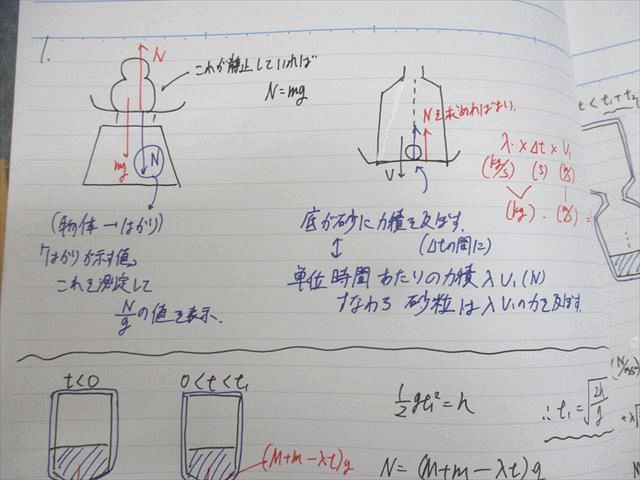 1.
N
これが静止していれば
N=mg
mg
N
(物体→はかり)
「はかりが示す値」
これを測定して
N/g の値を表示.
Nを求めればよい.
V
λ × Δt × V₁
(kg/s) (s) (m/s)
(kg)・(m/s) =
底が砂に力積を及ぼす.
(Δtの間に)
単位時間あたりの力積 λV₁(N)
すなわち 砂粒はλV₁の力を及ぼす.
t < t₁+t₂
t<0
0<t<t₁
(M+m−λt)g
1/2 gt₁²=h
∴ t₁=√(2h/g)
N= (M+m−λt)g